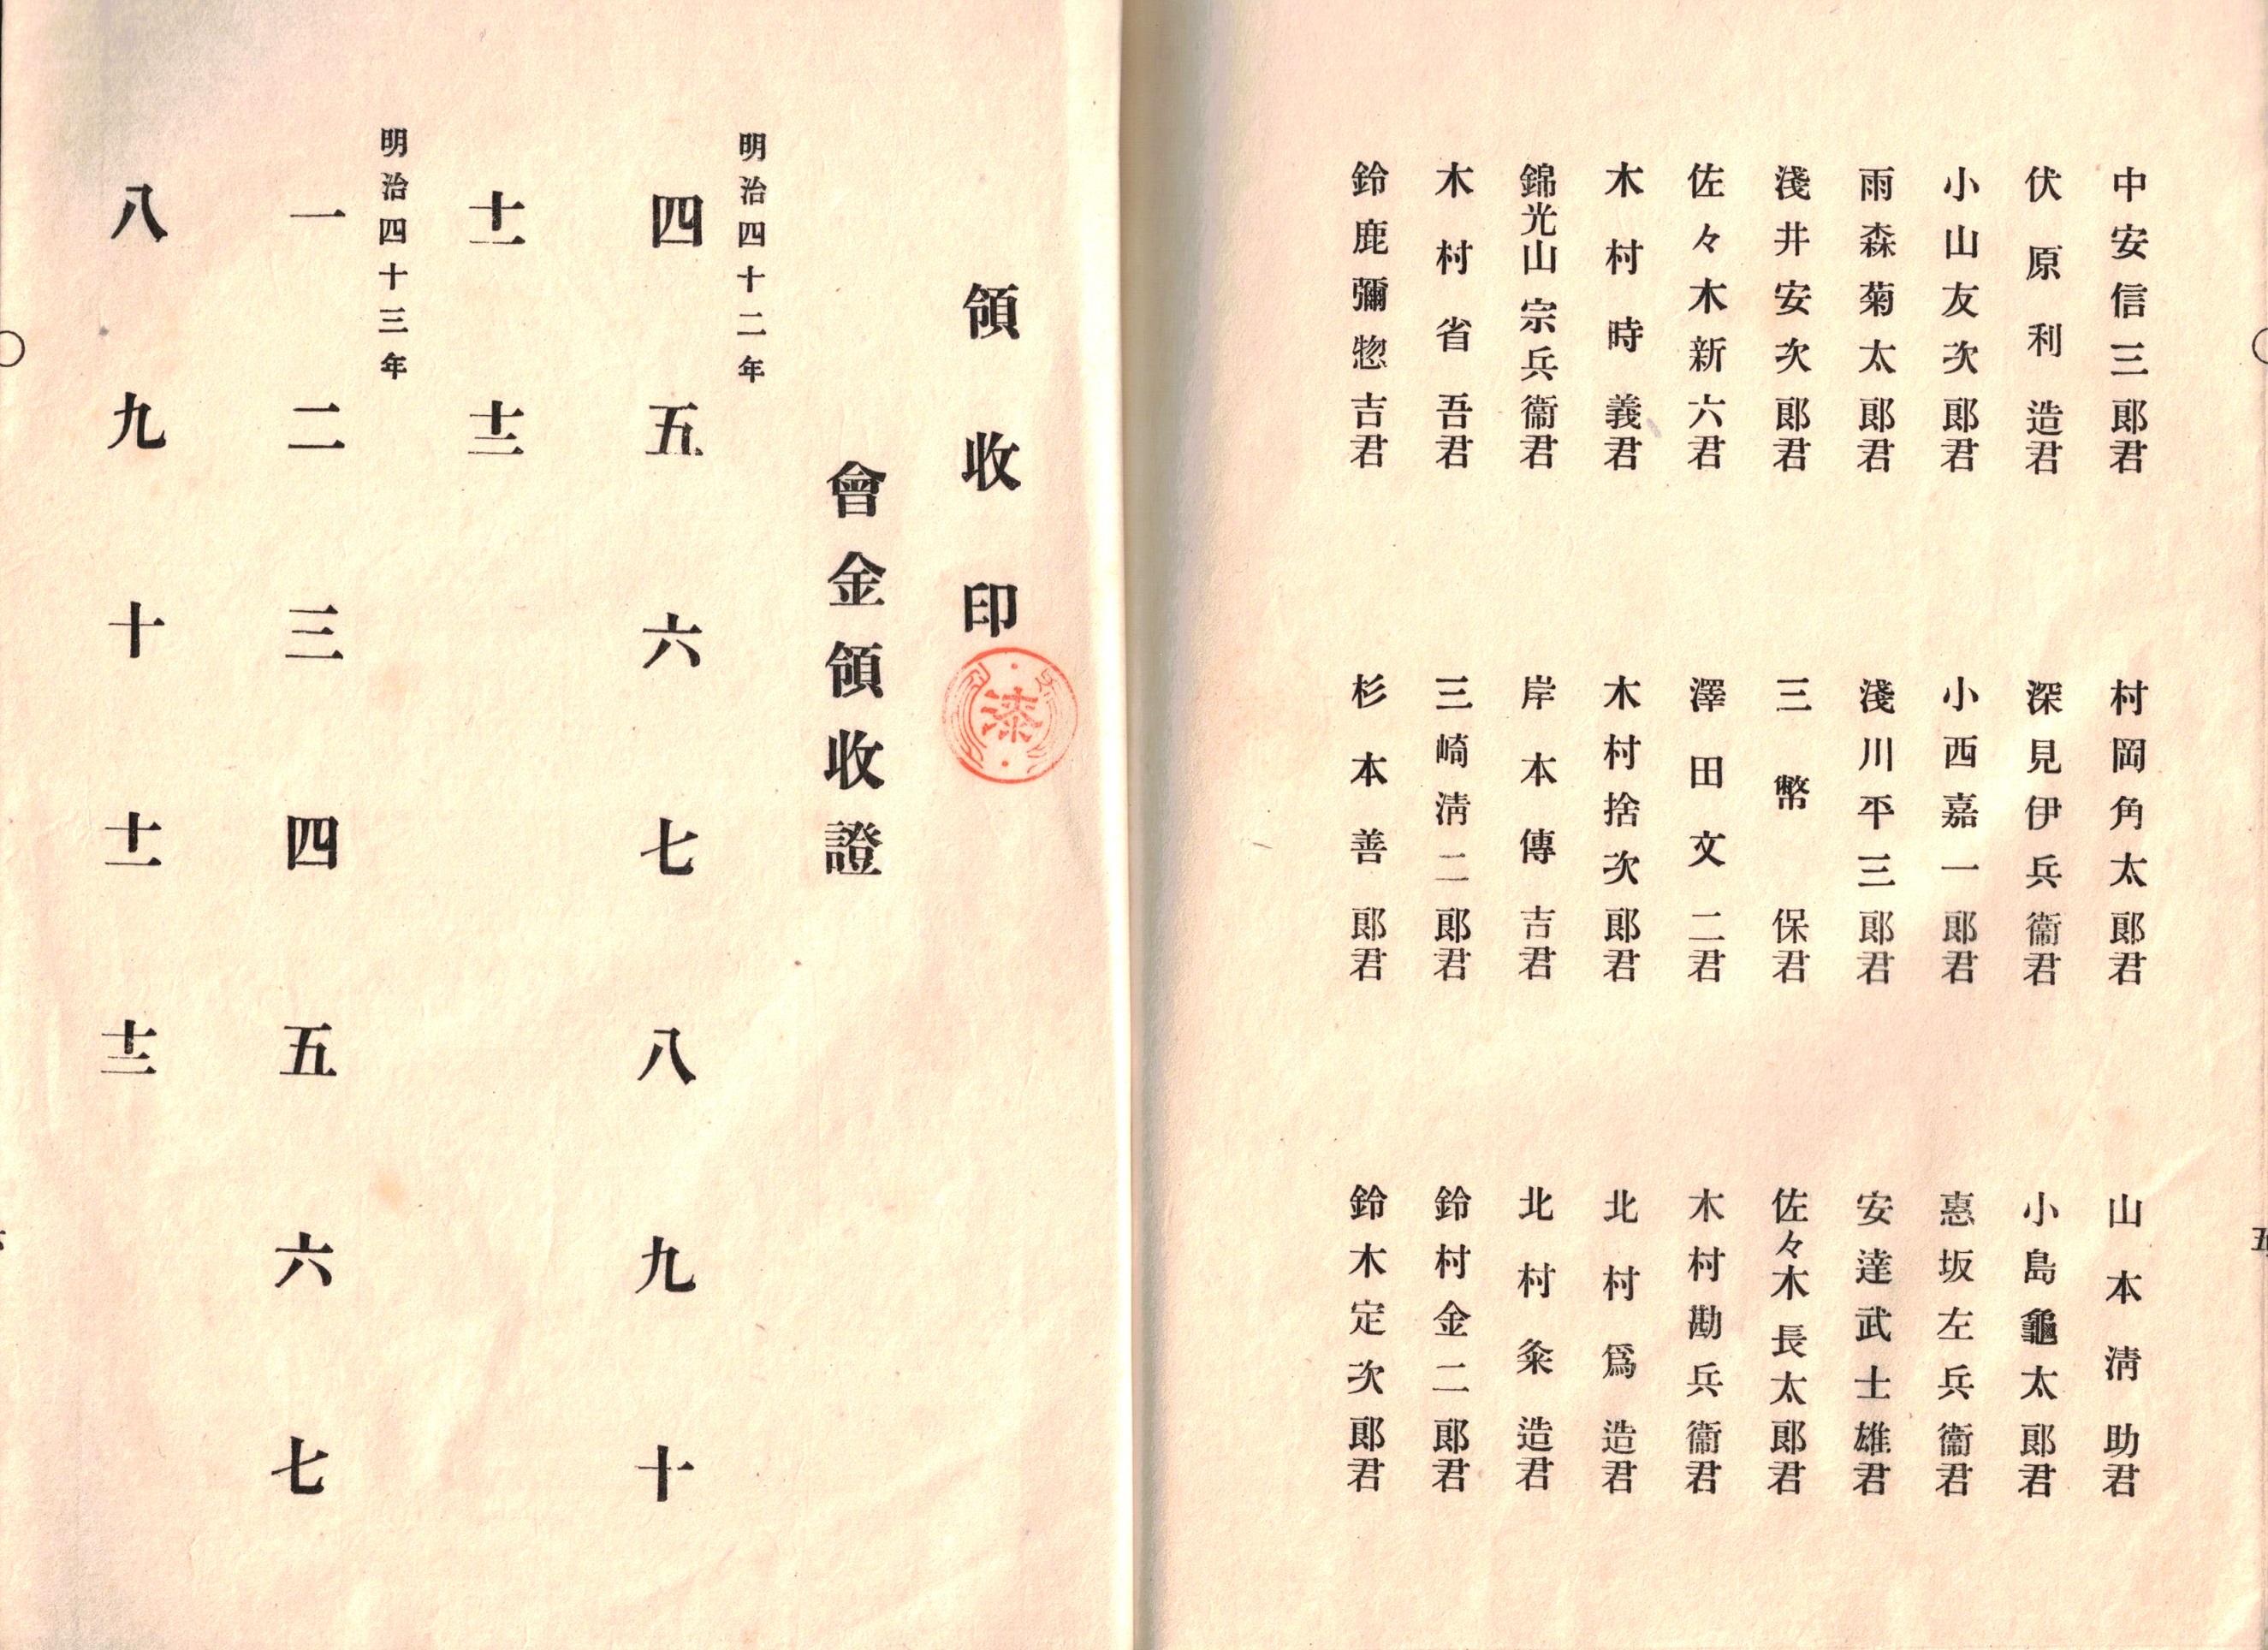 中安信三郎君
伏原利造君
小山友次郎君
雨森菊太郎君
淺井安次郎君
佐々木新六君
木村時義君
錦光山宗兵衞君
木村省吾君
鈴鹿彌惣吉君
村岡角太郎君
深見伊兵衞君
小西嘉一郎君
淺川平三郎君
三幣保君
澤田文二君
木村捨次郎君
岸本傳吉君
三崎淸二郎君
杉本善郎君
山本淸助君
小島龜太郎君
惠坂左兵衞君
安達武士雄君
佐々木長太郎君
木村勘兵衞君
北村爲造君
北村粂造君
鈴村金二郎君
鈴木定次郎君
五
領收印
漆
會金領收證
明治四十二年
四 五 六 七 八 九 十
十一 十二
明治四十三年
一 二 三 四 五 六 七
八 九 十 十一 十二